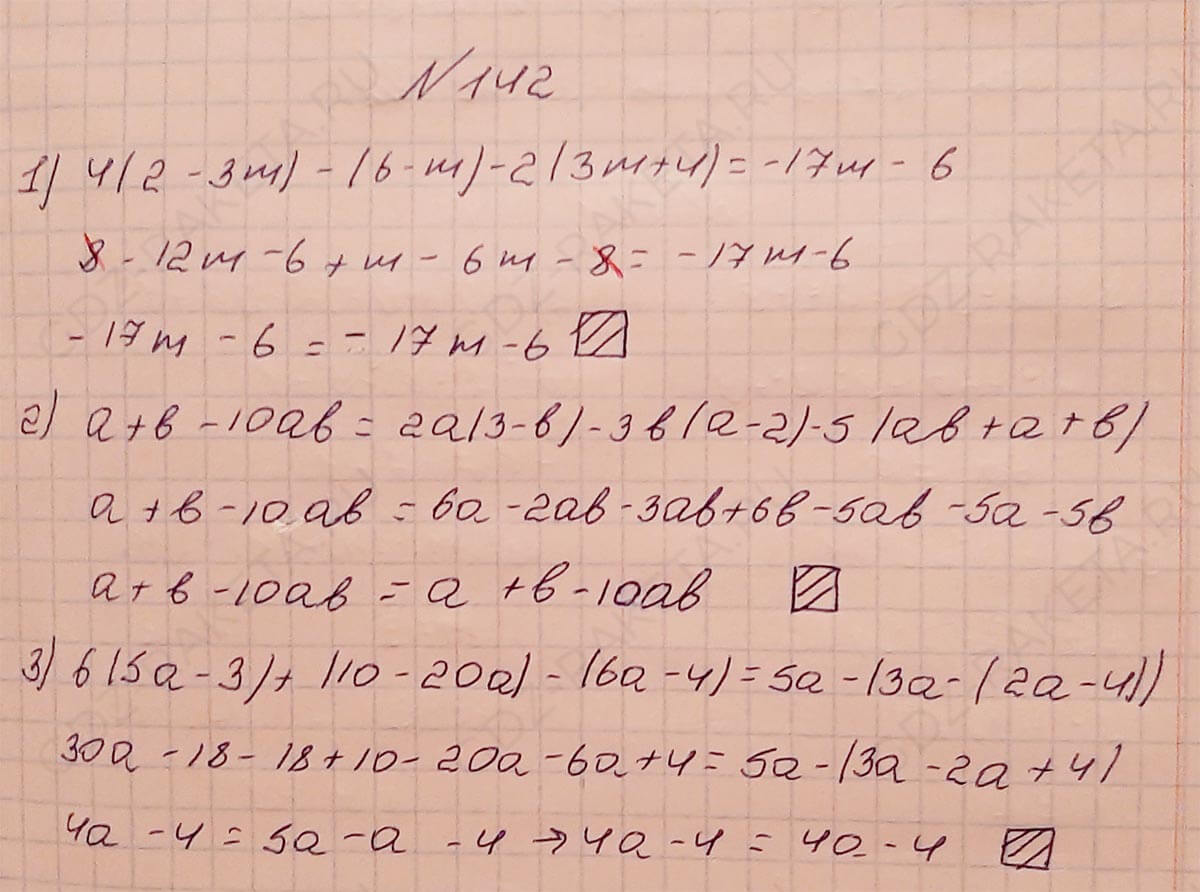 N 142
1) 4(2 - 3m) - (6 - m) - 2(3m + 4) = -17m - 6
8 - 12m - 6 + m - 6m - 8 = -17m - 6
-17m - 6 = -17m - 6
2) a + b - 10ab = 2a(3 - b) - 3b(a - 2) - 5(ab + a + b)
a + b - 10ab = 6a - 2ab - 3ab + 6b - 5ab - 5a - 5b
a + b - 10ab = a + b - 10ab
3) 6(5a - 3) + (10 - 20a) - (6a - 4) = 5a - (3a - (2a - 4))
30a - 18 - 18 + 10 - 20a - 6a + 4 = 5a - (3a - 2a + 4)
4a - 4 = 5a - a - 4 → 4a - 4 = 4a - 4
GDZ-RAKETA.RU